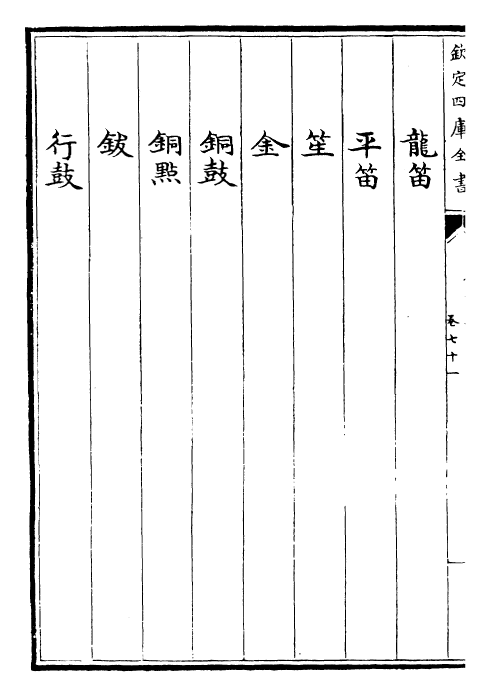 欽定四庫全書
卷七十一
龍笛
平笛
笙
金
銅鼓
銅點
鈸
行鼓